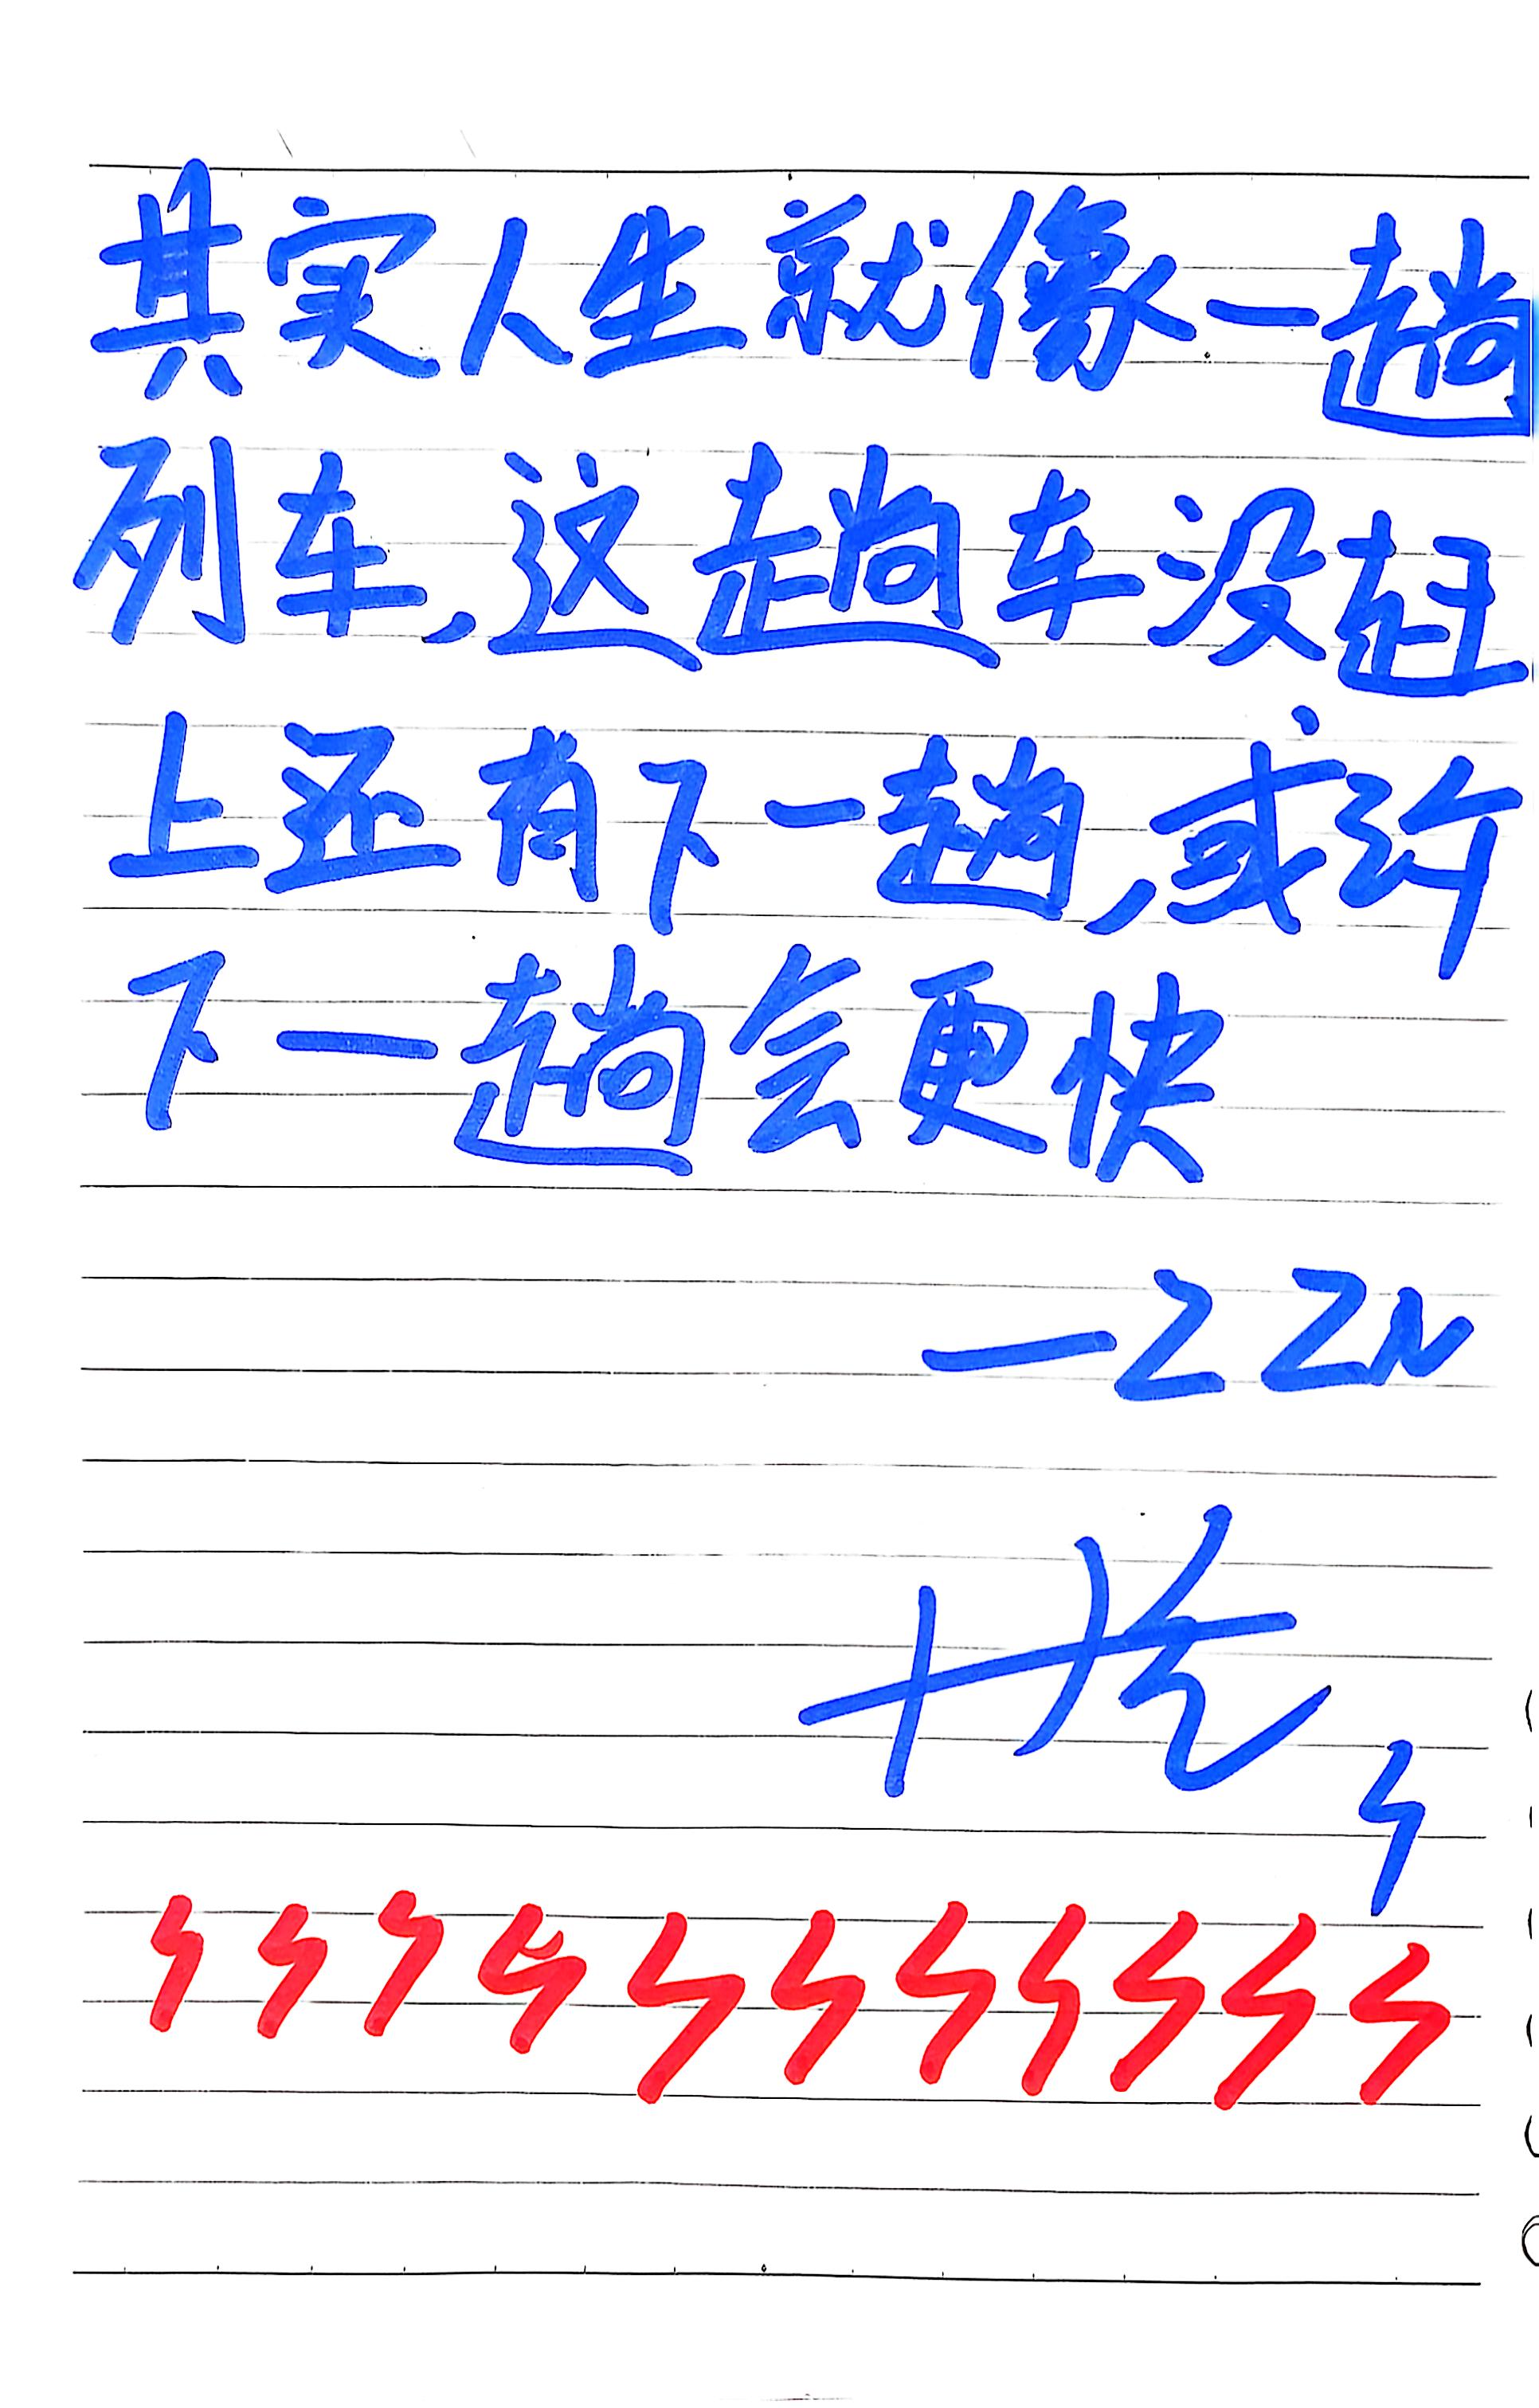 其实人生就像一趟
列车,这趟车没赶
上还有下一趟,或许
下一趟会更快
—ZZN